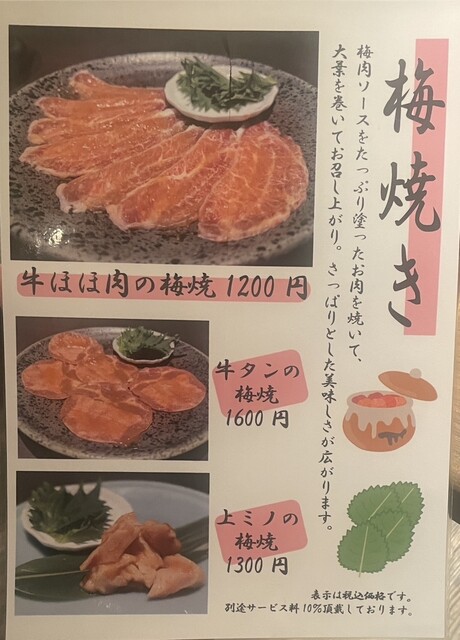 梅焼き
梅肉ソースをたっぷり塗ったお肉を焼いて、
大葉を巻いてお召し上がり。さっぱりとした美味しさが広がります。
牛ほほ肉の梅焼 1200 円
牛タンの
梅焼
1600 円
上ミノの
梅焼
1300 円
表示は税込価格です。
別途サービス料 10%頂戴しております。